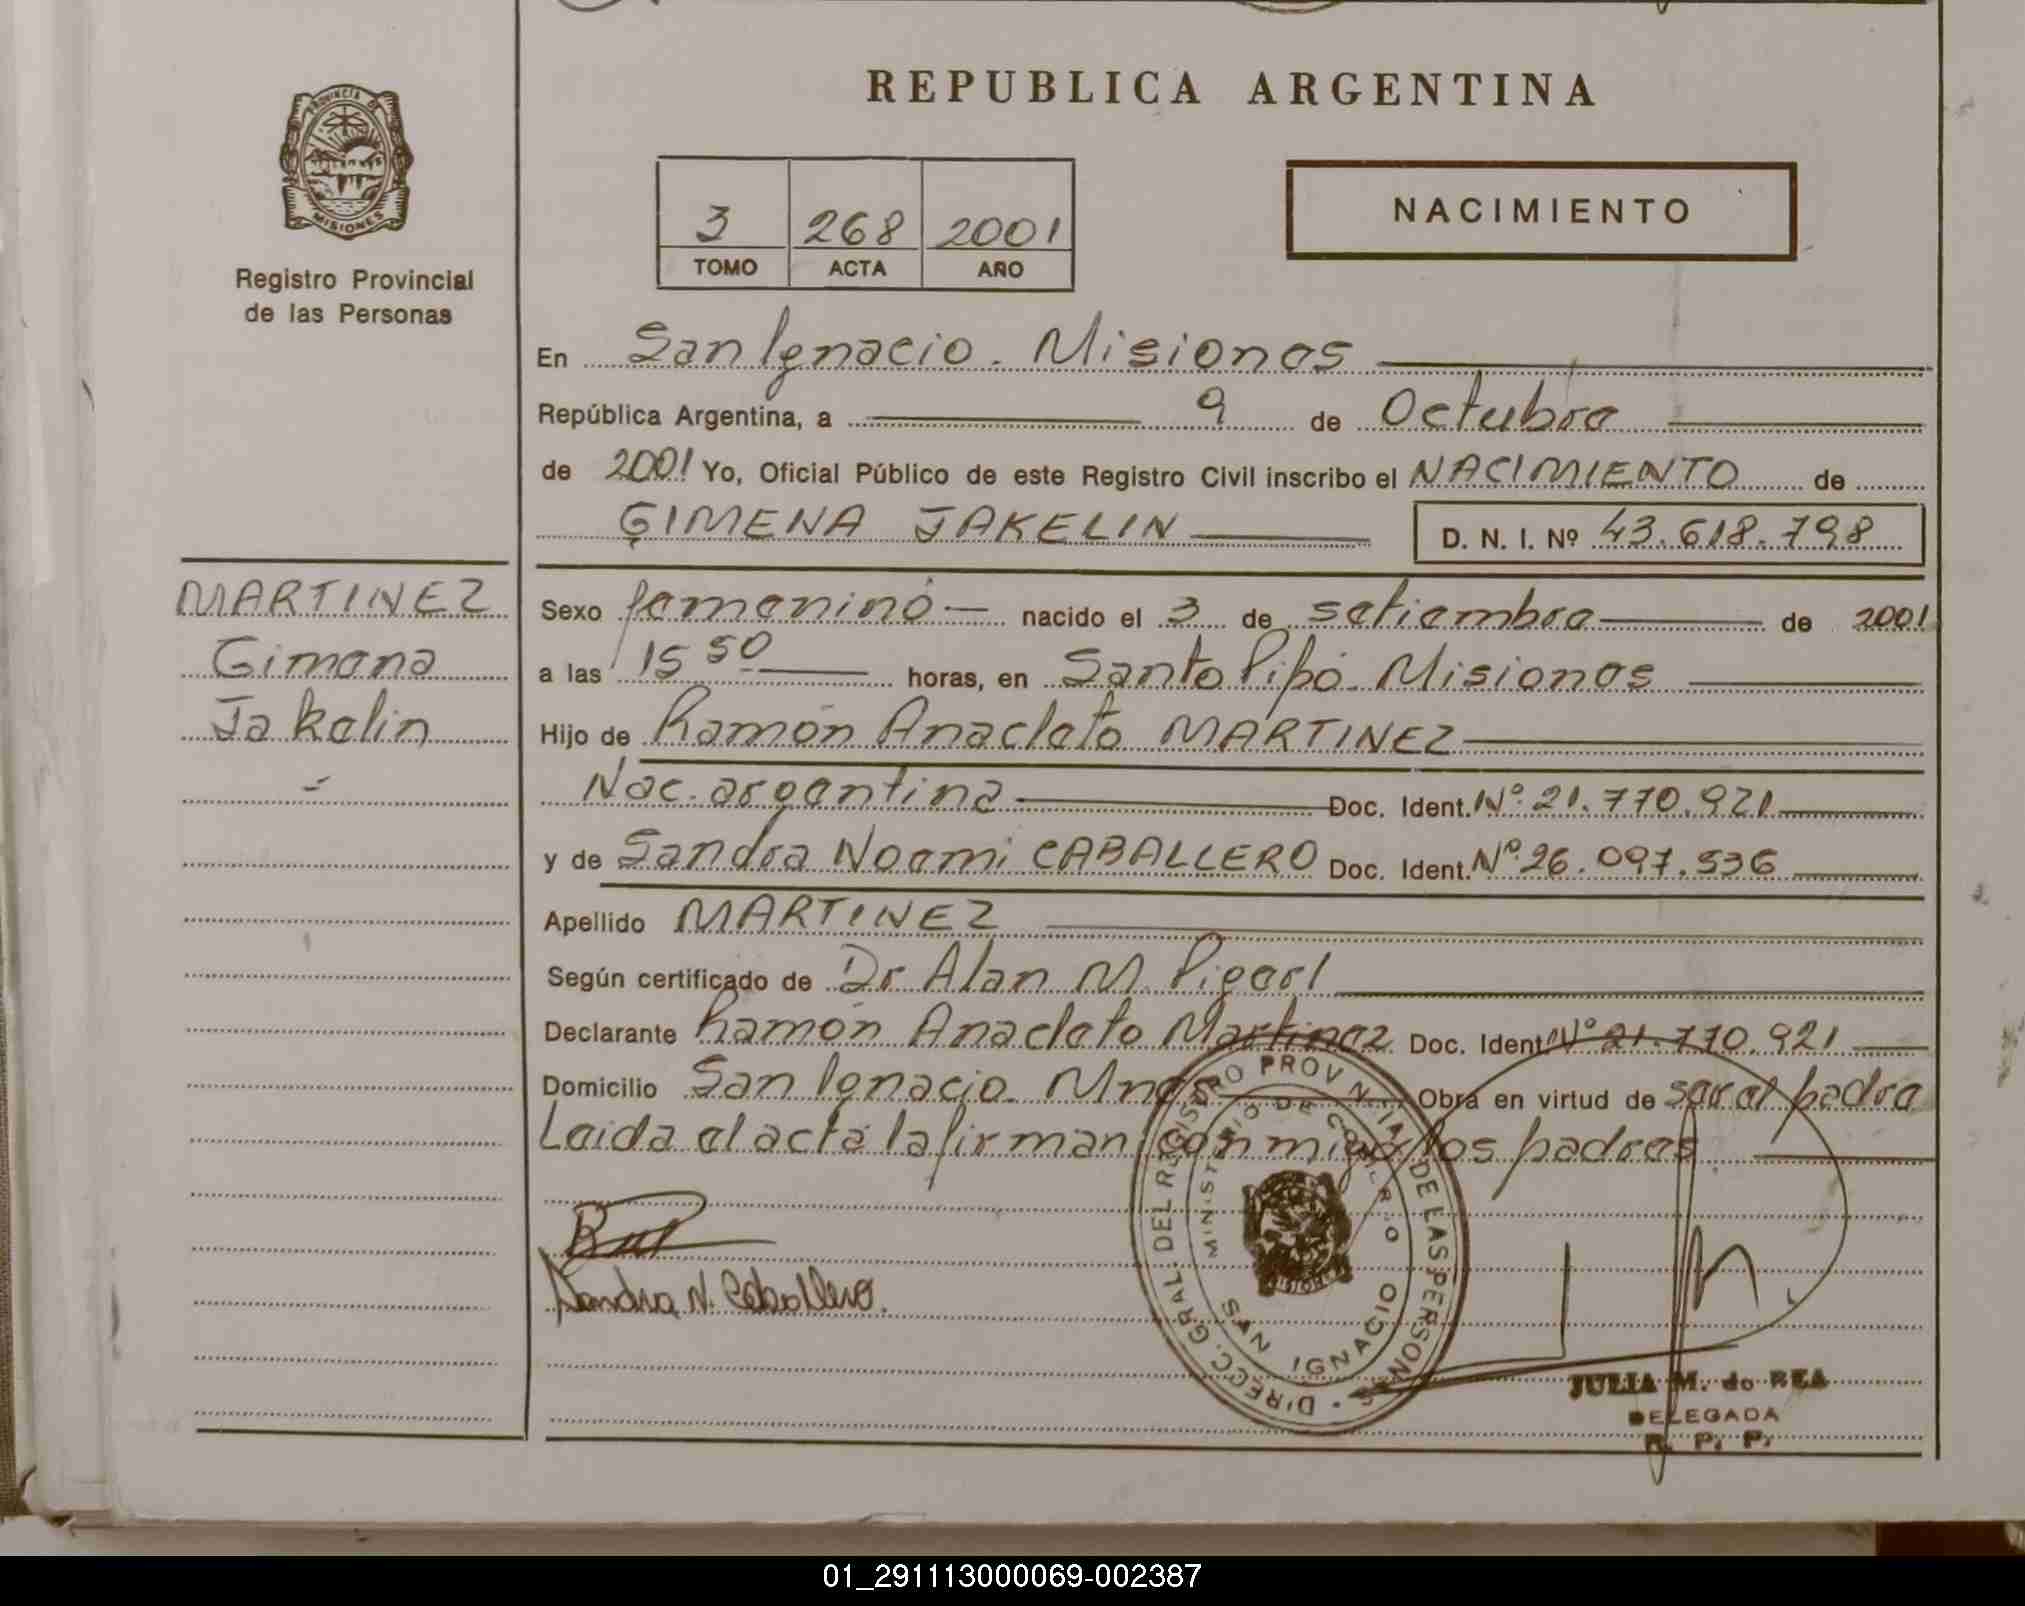 REPUBLICA ARGENTINA
PROVINCIA DE
MISIONES
Registro Provincial
de las Personas
3 268 2001
TOMO ACTA AÑO
NACIMIENTO
En San Ignacio. Misiones
República Argentina, a 9 de Octubre
de 2001 Yo, Oficial Público de este Registro Civil inscribo el NACIMIENTO de
GIMENA JAKELIN D. N. I. Nº 43.618.798
MARTINEZ
Gimena
Jakelin
Sexo femenino nacido el 3 de setiembre de 2001
a las 15 50 horas, en Santo Pipó. Misiones
Hijo de Ramón Anacleto MARTINEZ
Nac. argentina Doc. Ident. Nº 21.770.921
y de Sandra Noemi CABALLERO Doc. Ident. Nº 26.097.536
Apellido MARTINEZ
Según certificado de Dr Alan M.
Declarante Ramón Anacleto Martinez Doc. Ident Nº 21.770.921
Domicilio San Ignacio. Mnes Obra en virtud de ser el padre
Leida el acta la firman conmigo los padres
Sandra N. Caballero.
DIRECC. GRAL. DEL REGISTRO PROVINCIAL DE LAS PERSONAS
MINISTERIO DE
SAN IGNACIO
JULIA M. de REA
DELEGADA
R. P. P.
01_291113000069-002387